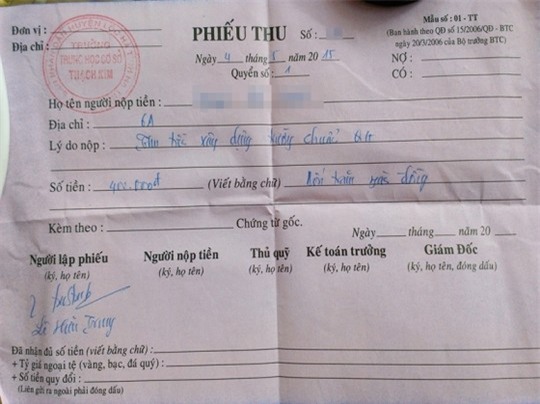 Đơn vị :
Địa chỉ :
TRƯỜNG
TRUNG HỌC CƠ SỞ
THẠCH KIM
PHIẾU THU Số :
Ngày 4 tháng 5 năm 2015
Quyển số : 1
Mẫu số : 01 - TT
(Ban hành theo QĐ số 15/2006/QĐ - BTC
ngày 20/3/2006 của Bộ trưởng BTC)
NỢ :
CÓ :
Họ tên người nộp tiền :
Địa chỉ : 6A
Lý do nộp : xây dựng trường chuẩn QG
Số tiền : 400.000đ (Viết bằng chữ) : Bốn trăm đồng
Kèm theo : Chứng từ gốc.
Ngày tháng năm 20
Người lập phiếu Người nộp tiền Thủ quỹ Kế toán trưởng Giám Đốc
(ký, họ tên) (ký, họ tên) (ký, họ tên) (ký, họ tên) (ký, họ tên, đóng dấu)
Trung
Đã nhận đủ số tiền (viết bằng chữ) :
+ Tỷ giá ngoại tệ (vàng, bạc, đá quý) :
+ Số tiền quy đổi :
(Liên gửi ra ngoài phải đóng dấu)